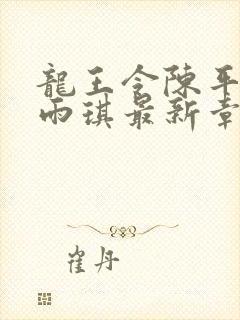 龍王令陳平
雨琪最新章
崔丹